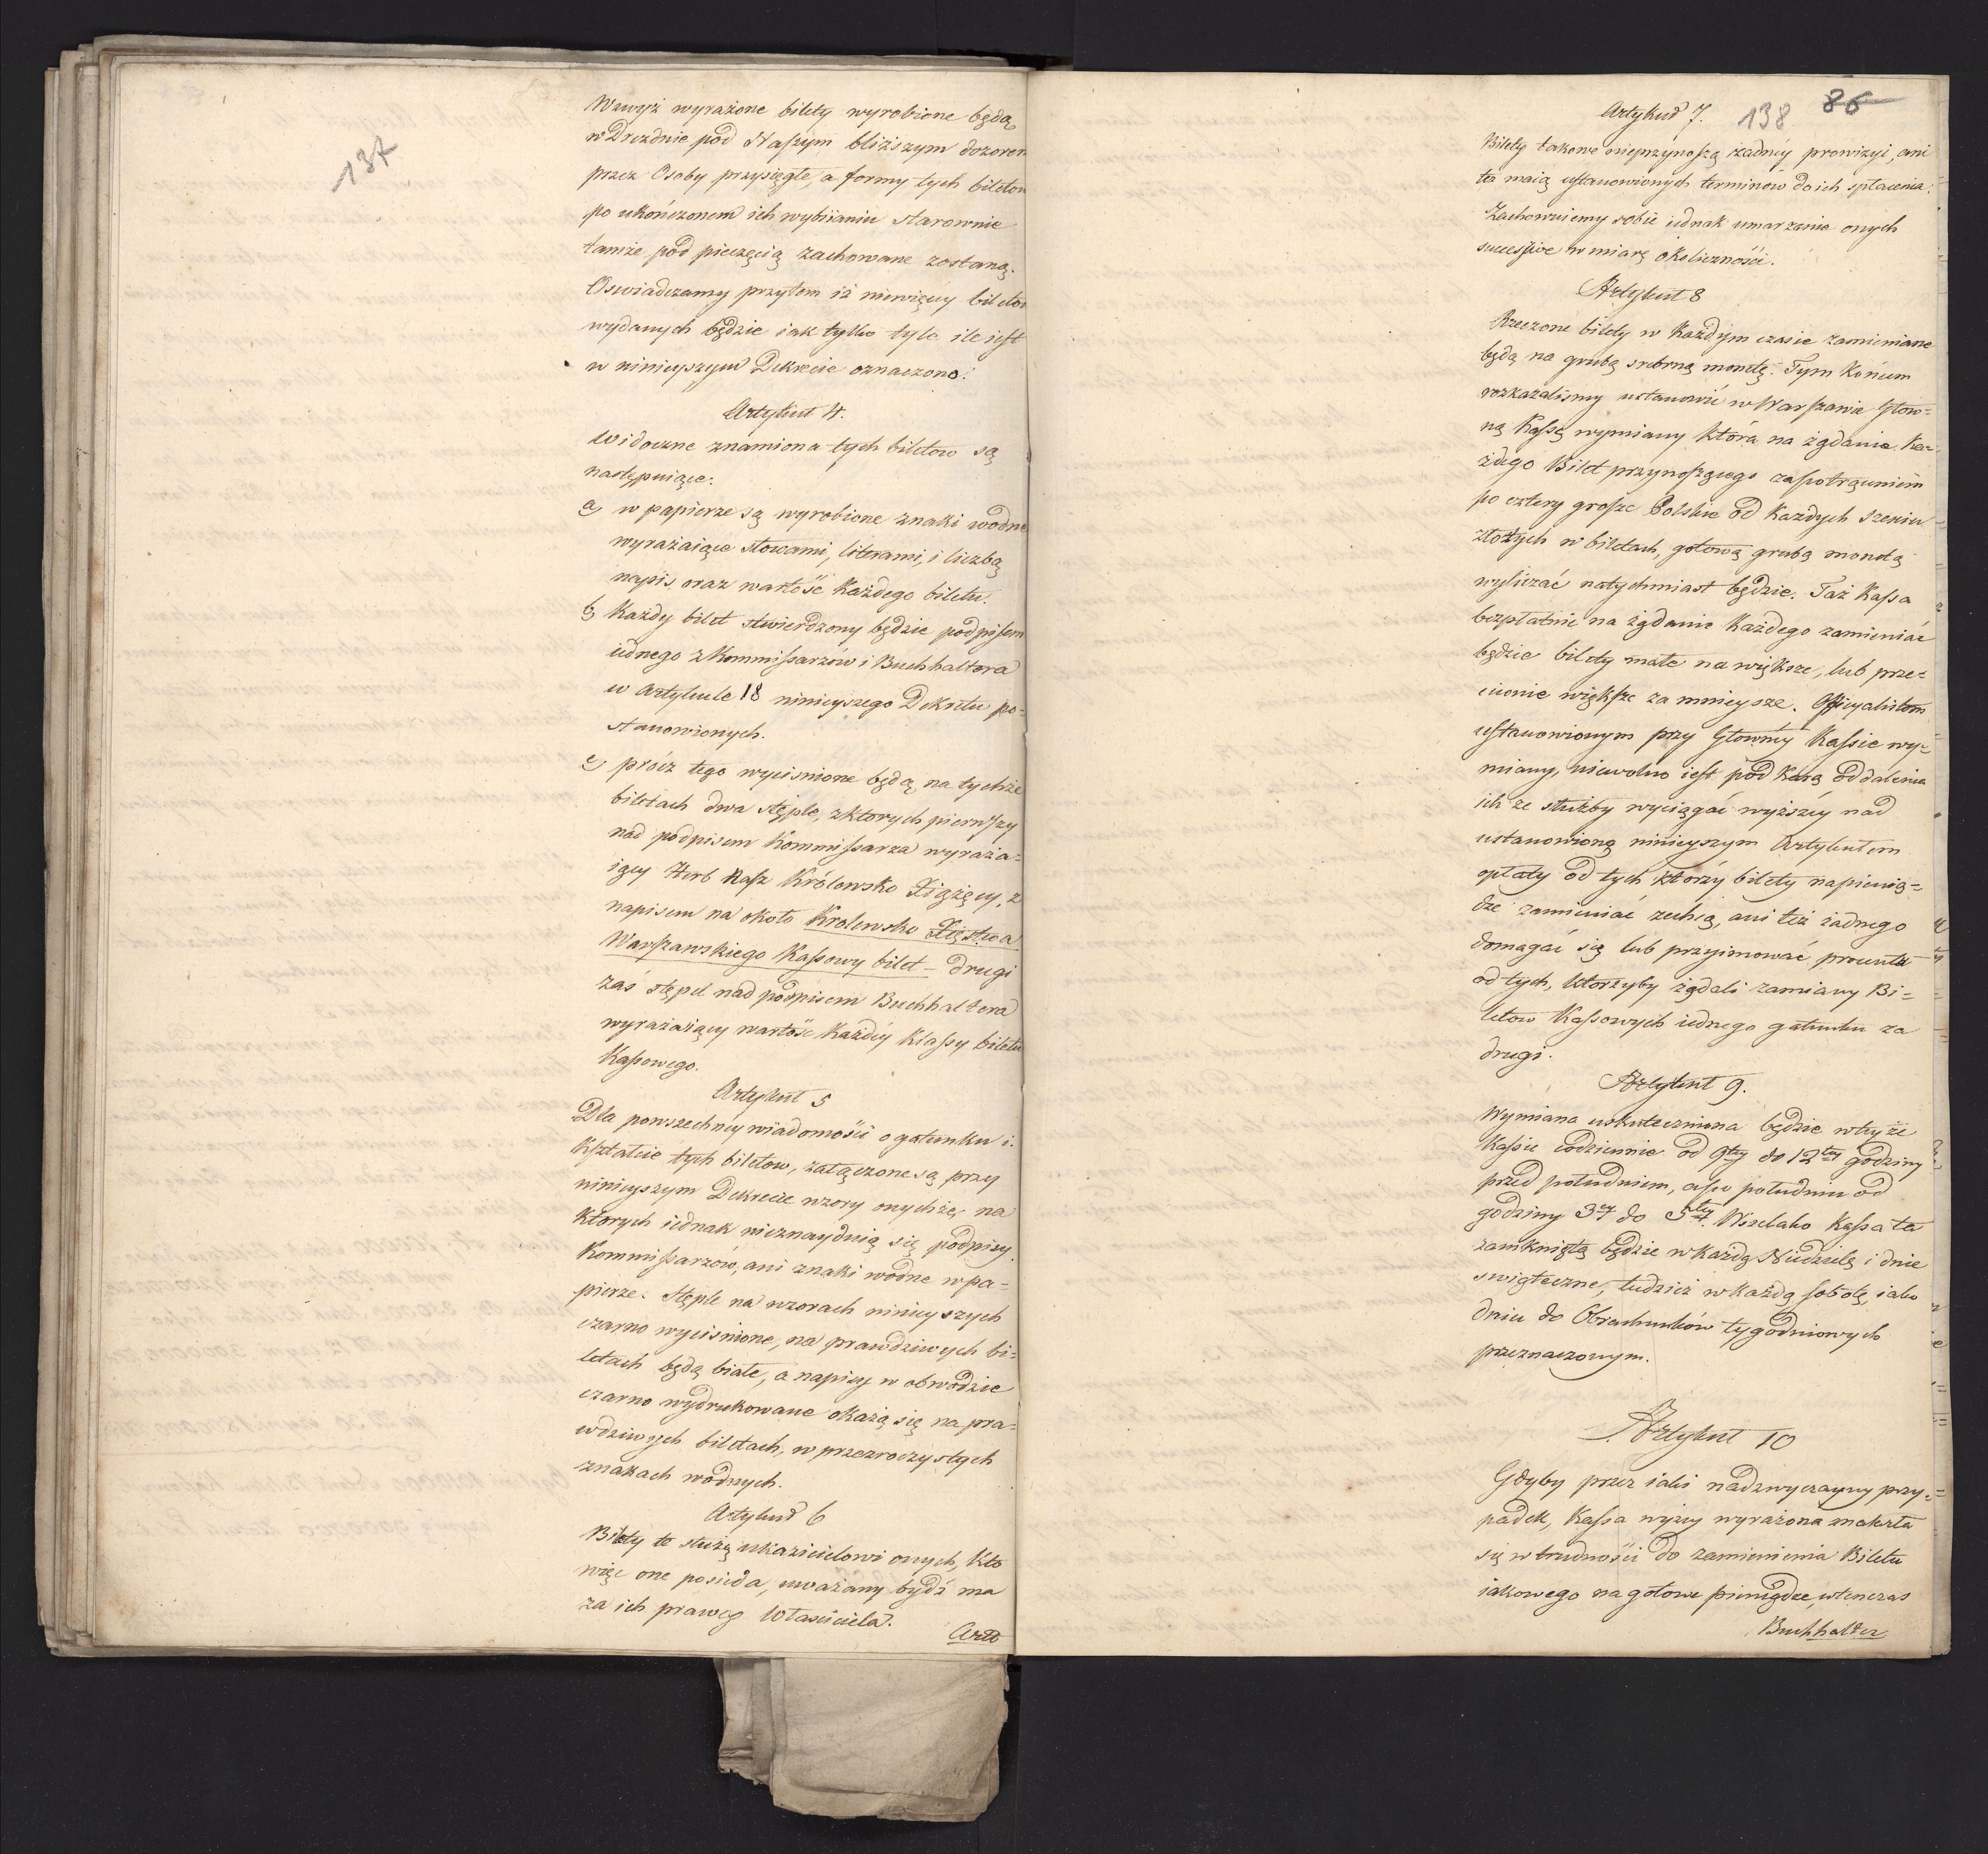 137
Wzwyż wyrażone bilety wyrobione będą
w Dreznie pod Naszym bliższym dozorem
przez Osoby przysięgłe, a formy tych biletow
po ukończonem ich wybiianiu starownie
tamże pod pieczęcią zachowane zostaną.
Oswiadczamy przytem iż niewięcy biletow
wydanych będzie iak tylko tyle ile iest
w ninieyszym Dekrecie oznaczono.
Artykuł 4.
Widoczne znamiona tych biletow są
następuiące:
a, w papierze są wyrobione znaki wodne
wyrażaiące słowami, literami, i liczbą
napis oraz wartość Każdego biletu.
b, Każdy bilet stwierdzony będzie podpisem
iednego z Kommissarzów i Buchhaltera
w Artykule 18 ninieyszego Dekretu po=
stanowionych.
c, prócz tego wycisnione będą na tychże
biletach dwa stęple, z ktorych pierwszy
nad podpisem Kommissarza wyraża=
iący Herb Nasz Królewsko Xiążęcy, z
napisem na około Krolewsko Xięstwa
Warszawskiego Kassowy bilet – drugi
zaś stępel nad podpisem Buchhaltera
wyrażaiący wartość Każdéy Klassy biletu
Kassowego.
Artykuł 5
Dla powszechney wiadomości o gatunku i
Kształcie tych biletow, załączone są przy
ninieyszym Dekrecie wzory onychże, na
Ktorych iednak nieznayduią się podpisy
Kommissarzów, ani znaki wodne w pa=
pierze. Stęple na wzorach ninieyszych
czarno wycisnione, na prawdziwych bi=
letach będą białe, a napisy w obwodzie
czarno wydrukowane okażą się na pra=
wdziwych biletach, w przezroczystych
znakach wodnych.
Artykuł 6
Bilety te służą ukazicielowi onych, Kto
więc one posiada, uważany bydź ma
za ich prawego Właściciela.
Artł
Artykuł 7. 138 86
Bilety takowe nieprzynoszą żadnéy prowizyi, ani
też maią ustanowionych terminow do ich spłacenia.
Zachowuiemy sobie iednak umarzanie onych
successive w miarę okoliczności.
Artykuł 8
Rzeczone bilety w Każdym czasie zamieniane
będą na grubą srebrną monetę. Tym Końcem
rozkazalismy ustanowić w Warszawie Głow=
ną Kassę wymiany która na żądanie Ka=
żdego Bilet przynoszącego za potrąceniem
po cztery grosze Polskie od Każdych Sześciu
złotych w biletach, gotową grubą monetą
wyliczać natychmiast będzie. Taż Kassa
bezpłatnie na żądanie Każdego zamieniać
będzie bilety małe na większe, lub prze=
ciwnie większe za mnieysze. Officyalistom
ustanowionym przy Głownéy Kassie wy=
miany, niewolno iest pod Karą oddalenia
ich ze służby wyciągać wyższéy nad
ustanowioną ninieyszym Artykułem
opłaty od tych, ktorzy bilety na pienią=
dze zamieniać zechcą, ani też żadnego
domagać się lub przyimować procentu
od tych, ktorzyby żądali zamiany Bi=
letow Kassowych iednego gatunku za
drugi.
Artykuł 9.
Wymiana uskuteczniona będzie w tey że
Kassie codziennie od 9tey do 12tey godziny
przed południem, a po południu od
godziny 3ey do 5tey Wszelako Kassa ta
zamkniętą będzie w Każdą Niedzielę i dnie
swięteczne, tudzież w Każdą Sobotę, iako
dniu do Obrachunków tygodniowych
przeznaczonym.
Artykuł 10
Gdyby przez iaki nadzwyczayny przy=
padek, Kassa wyżey wyrażona znalazła
się w trudności do zamienienia Biletu
iakowego na gotowe pieniądze, wtenczas
Buchhalter